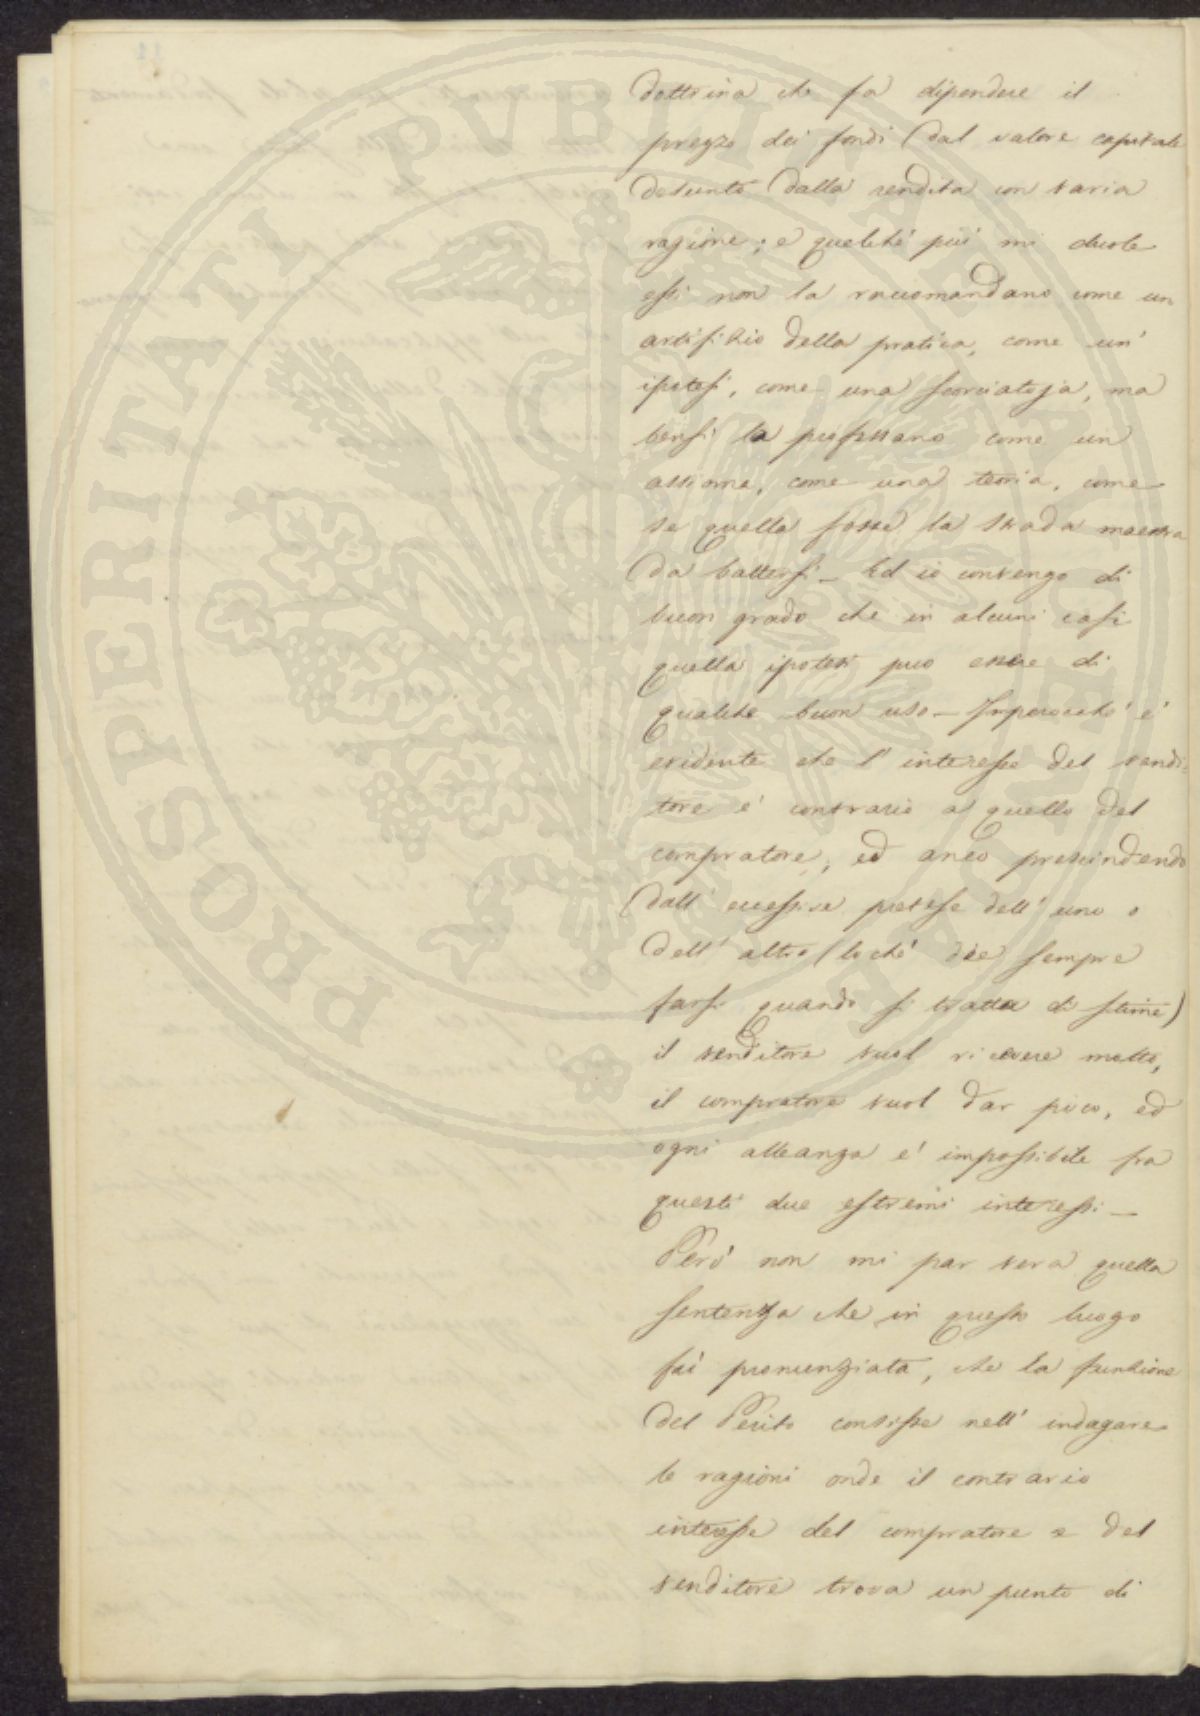 dottrina che fa dipendere il
prezzo dei fondi dal valore capitale
desunto dalla rendita con varia
ragione; e quelchè più mi duole
essi non la raccomandano come un
artifizio della pratica, come un'
ipotesi, come una scorciatoja, ma
bensì la professano come un
assioma, come una teoria, come
se quella fosse la strada maestra
da battersi – Ed io convengo di
buon grado che in alcuni casi
quella ipotesi può essere di
qualche buon uso – Imperocchè è
evidente che l'interesse del vendi-
tore è contrario a quello del
compratore, ed anco prescindendo
dall'eccessive pretese dell'uno o
dell'altro (lochè dee sempre
farsi quando si tratta di stime)
il venditore vuol ricevere molto,
il compratore vuol dar poco, ed
ogni alleanza è impossibile fra
questi due estremi interessi –
Però non mi par vera quella
sentenza che in questo luogo
fù pronunziata, che la funzione
del Perito consiste nell'indagare
le ragioni onde il contrario
interesse del compratore e del
venditore trova un punto di
PROSPERITATI PVBLICAE AVGENDAE